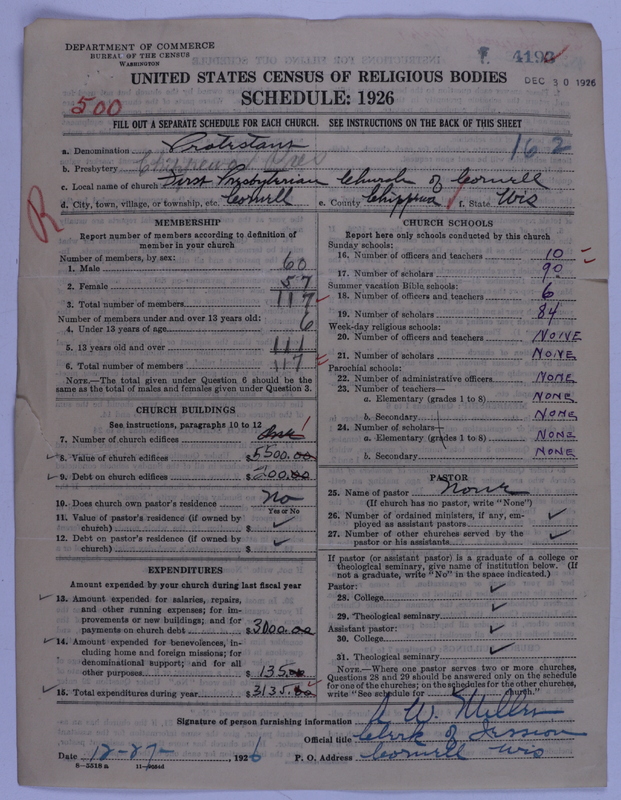 DEPARTMENT OF COMMERCE
BUREAU OF THE CENSUS
WASHINGTON
4193
DEC 30 1926
UNITED STATES CENSUS OF RELIGIOUS BODIES
500
SCHEDULE: 1926
FILL OUT A SEPARATE SCHEDULE FOR EACH CHURCH. SEE INSTRUCTIONS ON THE BACK OF THIS SHEET
162
a. Denomination Protestant
b. Presbytery Chippewa Pres
c. Local name of church First Presbyterian Church of Cornell
d. City, town, village, or township, etc. Cornell e. County Chippewa f. State Wis
R
MEMBERSHIP
Report number of members according to definition of
member in your church
Number of members, by sex:
1. Male 60
2. Female 57
3. Total number of members 117
Number of members under and over 13 years old:
4. Under 13 years of age 6
5. 13 years old and over 111
6. Total number of members 117
NOTE.—The total given under Question 6 should be the
same as the total of males and females given under Question 3.
CHURCH BUILDINGS
See instructions, paragraphs 10 to 12
7. Number of church edifices One 1
8. Value of church edifices $5500.00
9. Debt on church edifices $200.00
10. Does church own pastor's residence No
Yes or No
11. Value of pastor's residence (if owned by
church) $ ✓
12. Debt on pastor's residence (if owned by
church) $ ✓
EXPENDITURES
Amount expended by your church during last fiscal year
13. Amount expended for salaries, repairs,
and other running expenses; for im-
provements or new buildings; and for
payments on church debt $3000.00
14. Amount expended for benevolences, in-
cluding home and foreign missions; for
denominational support; and for all
other purposes $135.00
15. Total expenditures during year $3135.00
CHURCH SCHOOLS
Report here only schools conducted by this church
Sunday schools:
16. Number of officers and teachers 10
17. Number of scholars 90
Summer vacation Bible schools:
18. Number of officers and teachers 6
19. Number of scholars 84
Week-day religious schools:
20. Number of officers and teachers NONE
21. Number of scholars NONE
Parochial schools:
22. Number of administrative officers NONE
23. Number of teachers—
a. Elementary (grades 1 to 8) NONE
b. Secondary NONE
24. Number of scholars—
a. Elementary (grades 1 to 8) NONE
b. Secondary NONE
PASTOR
25. Name of pastor None
(If church has no pastor, write "None")
26. Number of ordained ministers, if any, em-
ployed as assistant pastors ✓
27. Number of other churches served by the
pastor or his assistants ✓
If pastor (or assistant pastor) is a graduate of a college or
theological seminary, give name of institution below. (If
not a graduate, write "No" in the space indicated.)
Pastor:
28. College ✓
29. Theological seminary ✓
Assistant pastor:
30. College ✓
31. Theological seminary ✓
NOTE.—Where one pastor serves two or more churches,
Questions 28 and 29 should be answered only on the schedule
for one of the churches; on the schedules for the other churches,
write "See schedule for church."
Signature of person furnishing information W. Miller
Official title Clerk of Session
Date 12-27-, 1926 P. O. Address Cornell Wis
8—5518 a